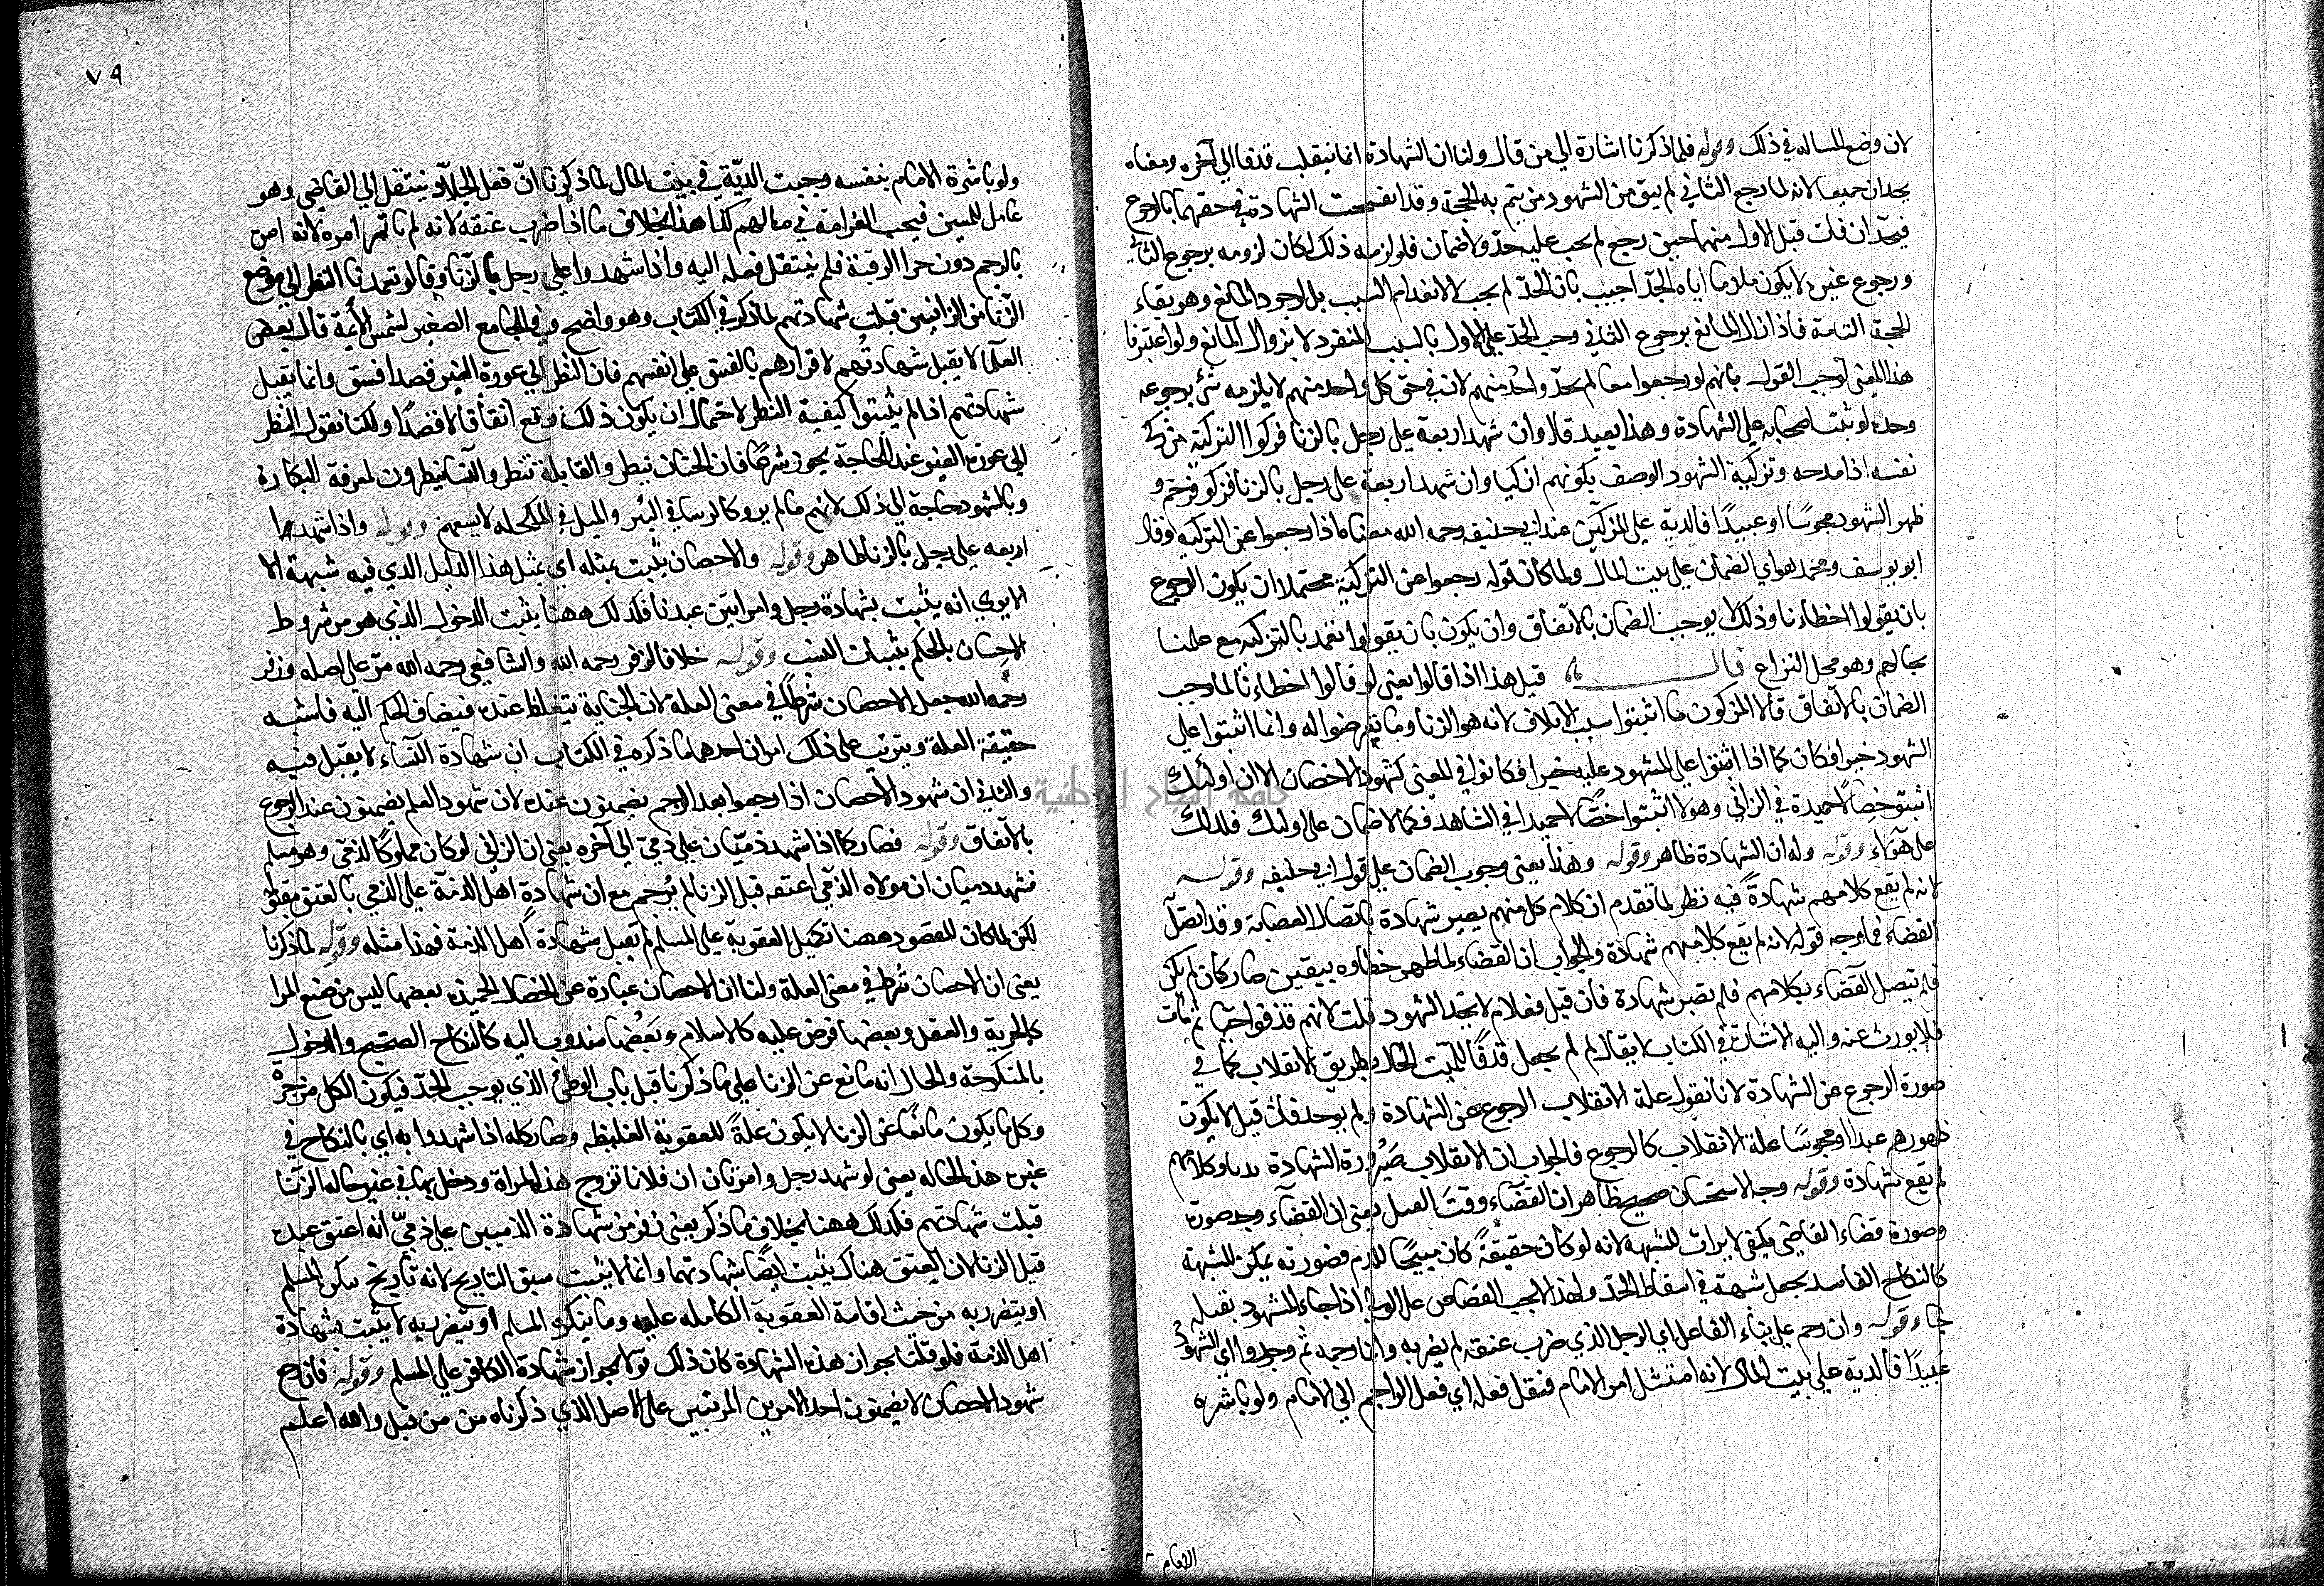 لان وضع المساله في ذلك وقوله فلما ذكرنا اشارة الي من قال ولنا ان الشهادة انما ينقلب قذفا الي آخره ومعناه
يحدان جميعا لانه لما رجع الثاني لم يبق من الشهود من يتم به الحجة وقد انفسخت الشهادة في حقهما بالرجوع
فيحدان فان قيل الاول منهما حين رجع لم يجب عليه حد ولا ضمان فلو لزمه ذلك لكان لزومه برجوع الثاني
ورجوع غيره لا يكون ملزما اياه الحد اجيب بان الحد لم يجب لا لانعدام السبب بل لوجود المانع وهو بقاء
الحجة التامة فاذا زال المانع برجوع الثاني وجب الحد علي الاول بالسبب المنفرد لا بزوال المانع ولو اعتبرنا
هذا المعني لوجب القول بانهم لو رجعوا معا لم يحد واحد منهم لان في حق كل واحد منهم لا يلزمه شئ برجوعه
وحده لو ثبت اصحابه علي الشهادة وهذا بعيد قال وان شهد اربعة علي رجل بالزنا فزكوا التزكية من زكي
نفسه اذا مدحه وتزكية الشهود الوصف بكونهم ازكيا وان شهد اربعة علي رجل بالزنا فزكوا فرجم و
ظهر الشهود مجوسا او عبيدا فالدية علي المزكين عند ابي حنيفه رحمه الله معناه اذا رجعوا عن التزكيه وقال
ابو يوسف ومحمد هو اي الضمان علي بيت المال ولما كان قوله رجعوا عن التزكية محتملا ان يكون الرجوع
بان يقولوا اخطأنا وذلك لا يوجب الضمان بالاتفاق وان يكون بان يقولوا تعمدنا بالتزكيه مع علمنا
بحالهم وهو محل النزاع قال قيل هذا اذا قالوا يعني لو قالوا اخطاءنا لما وجب
الضمان بالاتفاق قالا المزكون ما اثبتوا سبب الاتلاف لانه هو الزنا وما تعرضوا له وانما اثبتوا علي
الشهود خيرا فكان كما اذا اثبتوا علي المشهود عليه خيرا فكانوا في المعني كشهود الاحصان الا ان اولئك
اثبتوا خصالا حميدة في الزاني وهولا اثبتوا خصالا حميدا في الشاهد فكما لا ضمان علي اولئك فلذلك
علي هولاء وقوله وله ان الشهادة ظاهر وقوله وهذا يعني وجوب الضمان علي قول ابي حنيفه وقوله
لانه لم يقع كلامهم شهادة فيه نظر لما تقدم ان كلام كل منهم يصير شهادة باتصال القضاء به وقد اتصل
القضاء فما وجه قوله لانه لم يقع كلامهم شهادة والجواب ان القضاء لما ظهر خطاوه بيقين صار كان لم يكن
فلم يتصل القضاء بكلامهم فلم يصر شهادة فان قيل فعلام لا يحد الشهود قلت لانهم قذفوا حيا ثم مات
فلا يورث عنه واليه الاشارة في الكتاب لا يقال لم لم يجعل قذفا للميت للحال بطريق الانقلاب كما في
صورة الرجوع عن الشهادة لانا نقول علة الانقلاب الرجوع عن الشهادة ولم يوجد فان قيل لا يكون
ظهورهم عبدا او مجوسا علة الانقلاب كالرجوع فالجواب ان الانقلاب صيرورة الشهادة قذفا وكلامهم
لم يقع شهادة وقوله وجه الاستحسان صحيح ظاهر ان القضاء وقت القتل يعني ان القضاء وجد صورة
وصورة قضاء القاضي يكفي لايراث الشبهه لانه لو كان حقيقة كان مبيحا للدم فصورته تمكن الشبهة
كالنكاح الفاسد يجعل شبهة في اسقاط الحد ولهذا لا يجب القصاص علي الولي اذا جاء المشهود بقتله
حيا وقوله وان رجم علي بناء الفاعل اي الرجل الذي ضرب عنقه لم يضربه وانما رجمه ثم وجدوا اي الشهود
عبيدا فالدية علي بيت المال لانه امتثل امر الامام فنقل فعله اي فعل الراجم الي الامام ولو باشره
الامام
٧٩
ولو باشرة الامام بنفسه وجبت الدية في بيت المال لما ذكرنا ان فعل الجلاد ينتقل الي القاضي وهو
عامل للمسلمين فيجب الغرامة في مالهم كذا هذا بخلاف ما اذا ضرب عنقه لانه لم ياتمر امره لانه امر
بالرجم دون حز الرقبة فلم ينتقل فعله اليه واذا شهدوا علي رجل بالزنا وقالوا تعمدنا النظر الي موضع
الزنا من الزانيين قبلت شهادتهم لما ذكر في الكتاب وهو واضح وفي الجامع الصغير لشمس الأئمة قال بعض
العلما لا يقبل شهادتهم لاقرارهم بالفسق علي انفسهم فان النظر الي عورة الغير قصدا فسق وانما يقبل
شهادتهم اذا لم يثبتوا كيفية النظر لاحتمال ان يكون ذلك وقع اتفاقا لا قصدا ولكنا نقول النظر
الي عورة الغير عند الحاجة يجوز شرعا فان الختان ينظر والقابلة تنظر والنساء ينظرون لمعرفة البكارة
وبالشهود حاجة الي ذلك لانهم ما لم يروا كالرشا في البئر والميل في المكحله لا يسعهم وقوله واذا شهد
اربعه علي رجل بالزنا ظاهر وقوله والاحصان يثبت بمثله اي بمثل هذا الدليل الذي فيه شبهة الا
الا يري انه يثبت بشهادة رجل وامراتين عندنا فكذلك ههنا يثبت الدخول الذي هو من شروط
الاحصان بالحكم بثبات النسب وقوله خلافا لزفر رحمه الله والشافعي رحمه الله مر علي اصله وزفر
رحمه الله جعل الاحصان شرطا في معني العلة لان الجناية تتغلظ عنده فيضاف الحكم اليه فاشبه
حقيقة العلة ويترتب علي ذلك امران احدهما ما ذكره في الكتاب ان شهادة النساء لا يقبل فيه
والثاني ان شهود الاحصان اذا رجعوا بعد الرجم يضمنون عنده لان شهود العلم يضمنون عند الرجوع
بالاتفاق وقوله فصار كما اذا شهد ذميان علي ذمي الي آخره يعني ان الزاني لو كان مملوكا لذمي وهو مسلم
فشهد ذميان ان مولاه الذمي اعتقه قبل الزنا لم يرجم مع ان شهادة اهل الذمة علي الذمي بالعتق مقبولة
لكن لما كان المقصود ههنا تكميل العقوبة علي المسلم لم تقبل شهادة أهل الذمة فهذا مثله وقوله لما ذكرنا
يعني ان الاحصان شرط في معني العلة ولنا ان الاحصان عبارة عن الخصال الحميده بعضها ليس من صنع المرا
كالحرية والعقل وبعضها فرض عليه كالاسلام وبعضها مندوب اليه كالنكاح الصحيح والدخول
بالمنكوحة والحال انه مانع عن الزنا علي ما ذكرنا قبل باب الوطئ الذي يوجب الحد فيكون الكل مزجرة
وكل ما يكون مانعا عن الزنا لا يكون علة للعقوبة الغليظه وصار كله اذا شهدوا به اي بالنكاح في
غير هذه الحاله يعني لو شهد رجل وامرتان ان فلانا تزوج هذه المراة ودخل بها في غير حاله الزنا
قبلت شهادتهم فكذلك ههنا بخلاف ما ذكر يعني زفر من شهادة الذميين علي ذمي انه اعتق عبده
قبل الزنا لان العتق هناك يثبت ايضا بشهادتهما وانما لا يثبت سبق التاريخ لانه تاريخ ينكره المسلم
او يتضرر به من حيث اقامة العقوبة الكامله عليه وما ينكره المسلم او يتضرر به لا يثبت بشهادة
اهل الذمة فلو قلنا بجواز هذه الشهادة كان ذلك قولا بجواز شهادة الكافر علي المسلم وقوله فان رجع
شهود الاحصان لا يضمنون احد الامرين المرتبين علي الاصل الذي ذكرناه من من قبل والله اعلم
جامعة النجاح الوطنية